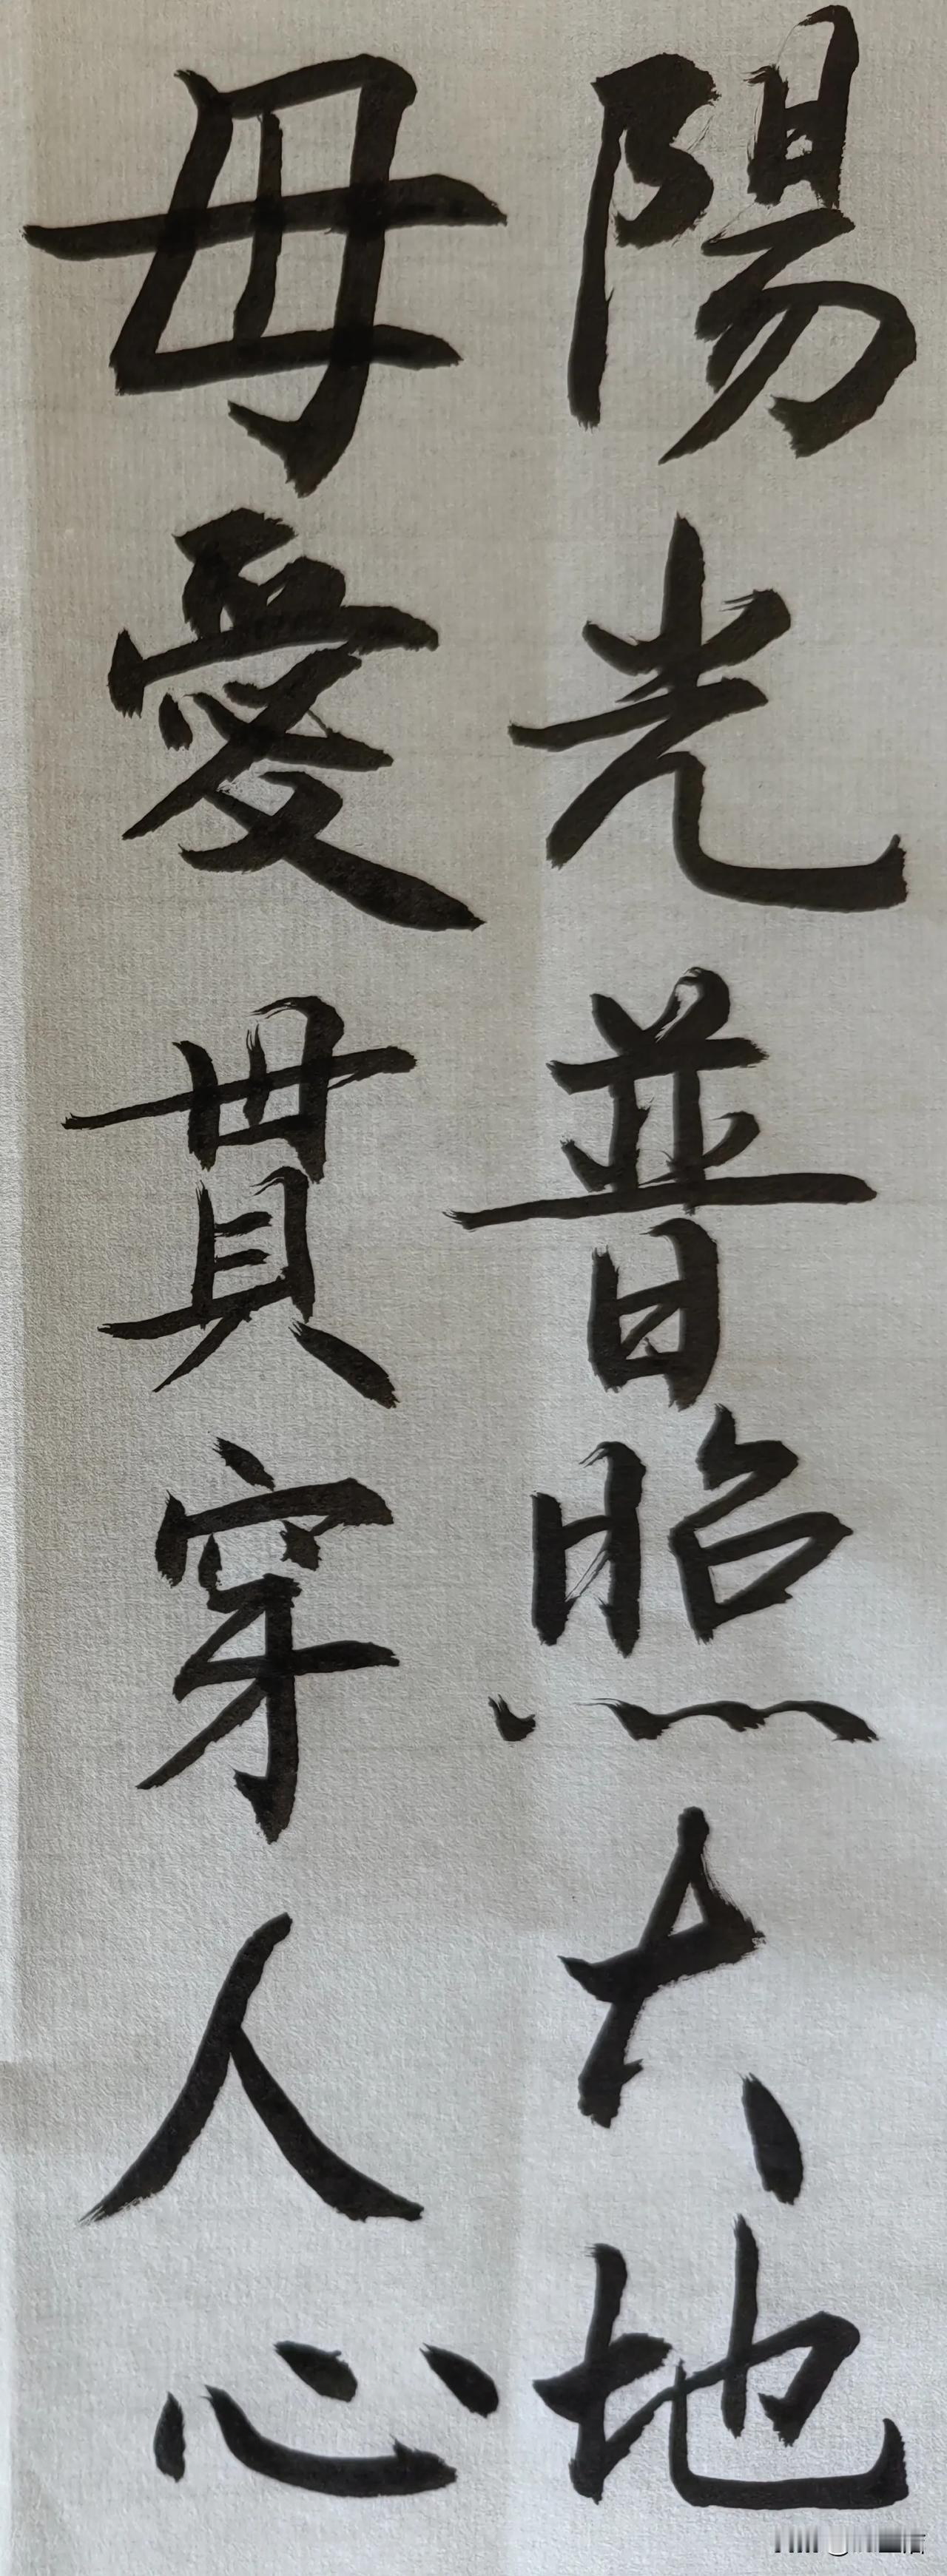 陽光普照大地
毋愛貫穿人心